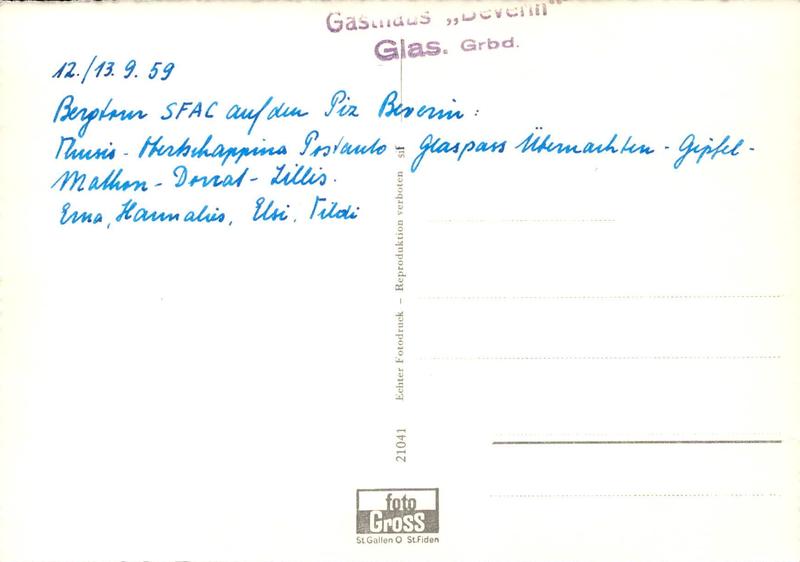 Gasthaus „Beverin“
Glas. Grbd.
12./13.9.59
Bergtour SFAC auf den Piz Beverin:
Thusis - Obertschappina Postauto - Glaspass Übernachten - Gipfel -
Mathon - Donat - Zillis.
Erna, Hannalies, Elsi, Tildi
Echter Fotodruck – Reproduktion verboten
21041
foto
Gross
St.Gallen O St.Fiden